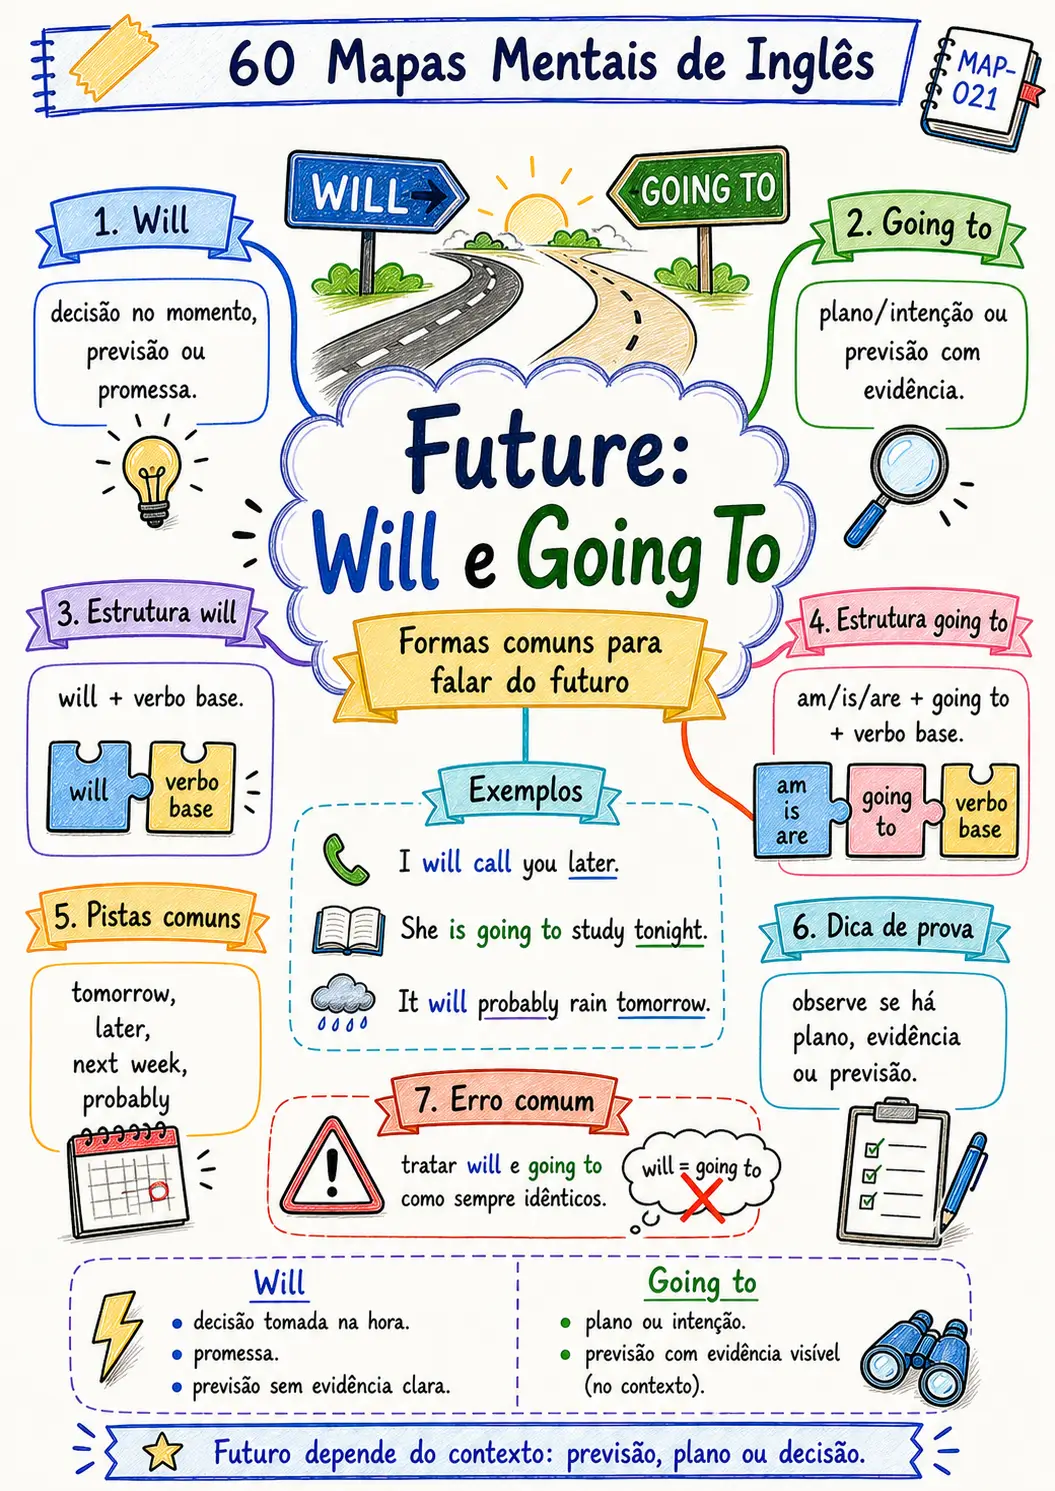 60 Mapas Mentais de Inglês
MAP-
021
WILL
GOING TO
1. Will
decisão no momento,
previsão ou
promessa.
2. Going to
plano/intenção ou
previsão com
evidência.
Future:
Will e Going To
Formas comuns para
falar do futuro
3. Estrutura will
will + verbo base.
will
verbo
base
4. Estrutura going to
am/is/are + going to
+ verbo base.
am
is
are
going
to
verbo
base
Exemplos
I will call you later.
She is going to study tonight.
It will probably rain tomorrow.
5. Pistas comuns
tomorrow,
later,
next week,
probably
6. Dica de prova
observe se há
plano, evidência
ou previsão.
7. Erro comum
tratar will e going to
como sempre idênticos.
will = going to
Will
decisão tomada na hora.
promessa.
previsão sem evidência clara.
Going to
plano ou intenção.
previsão com evidência visível
(no contexto).
Futuro depende do contexto: previsão, plano ou decisão.